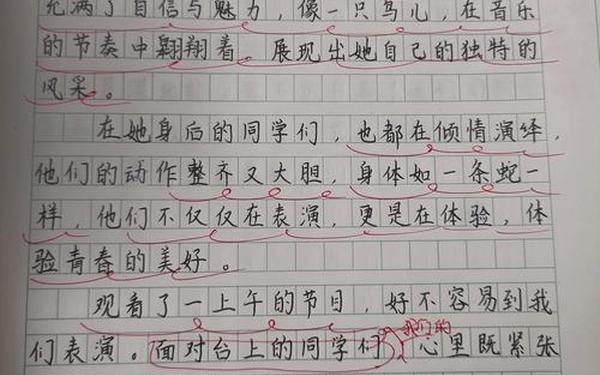 充满了自信与魅力，像一只鸟儿，在音乐
的节奏中翱翔着，展现出她自己的独特的
风采。
在她身后的同学们，也都在倾情演绎，
他们的动作整齐又大胆，身体如一条蛇一
样，他们不仅仅在表演，更是在体验，体
验青春的美好。
观看了一上午的节目，好不容易到我
们表演。面对台上的同学们我们的心里既紧张